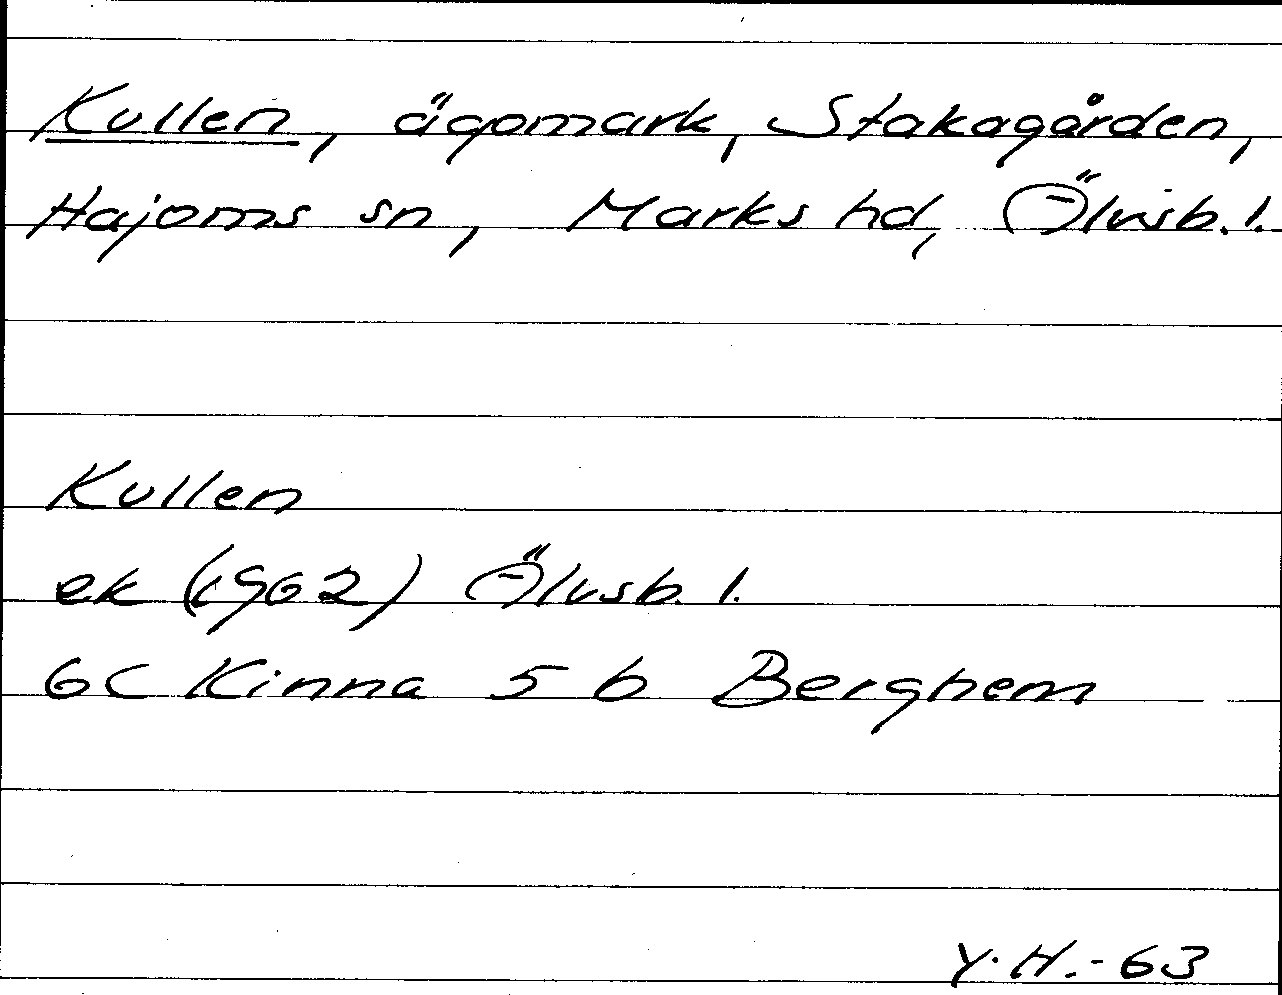 Kullen, ägomark, Stakagården,
Hajoms sn, Marks hd, Älvsb. l.
Kullen
ek (1962) Älvsb. l.
6C Kinna 5 b Berghem
Y.H.-63